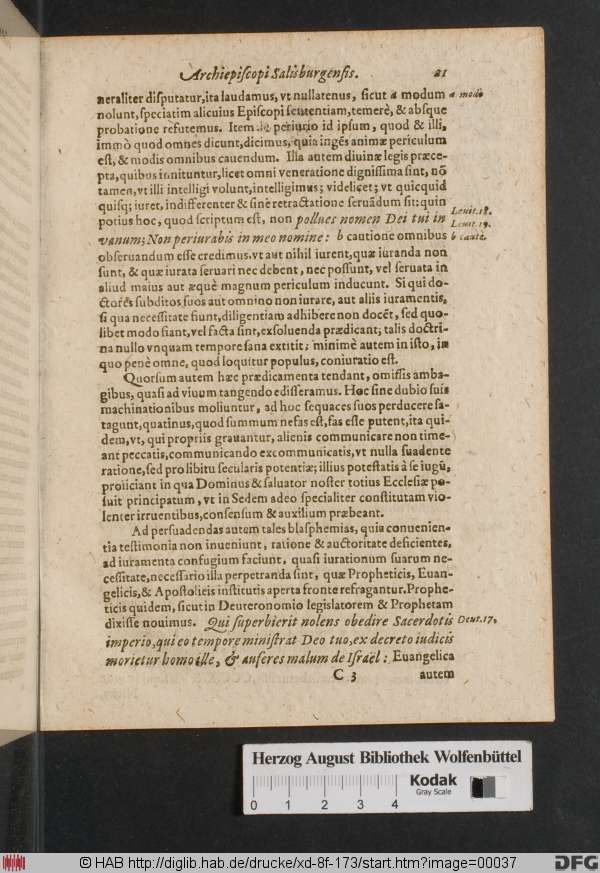 Archiepiscopi Salisburgensis. 21
neraliter disputatur, ita laudamus, vt nullatenus, sicut a modum a modo
nolunt, speciatim alicuius Episcopi sententiam, temerè, & absque
probatione refutemus. Item de periurio id ipsum, quod & illi,
immò quod omnes dicunt, dicimus, quia ingēs animæ periculum
est, & modis omnibus cauendum. Illa autem diuinæ legis præce-
pta, quibus innituntur, licet omni veneratione dignissima sint, nō
tamen, vt illi intelligi volunt, intelligimus; videlicet; vt quicquid
quisq; iuret, indifferenter & sinè retractatione seruādum sit: quin
potius hoc, quod scriptum est, non pollues nomen Dei tui in Leuit. 18.
Leuit. 19.
vanum; Non periurabis in meo nomine: b cautione omnibus b cautè.
obseruandum esse credimus. vt aut nihil iurent, quæ iuranda non
sunt, & quæ iurata seruari nec debent, nec possunt, vel seruata in
aliud maius aut æquè magnum periculum inducunt. Si qui do-
ctores subditos suos aut omnino non iurare, aut aliis iuramentis,
si qua necessitate fiunt, diligentiam adhibere non docēt, sed quo-
libet modo fiant, vel facta sint, exsoluenda prædicant; talis doctri-
na nullo vnquam tempore sana extitit; minimè autem in isto, in
quo penè omne, quod loquitur populus, coniuratio est.
Quorsum autem hæc prædicamenta tendant, omissis amba-
gibus, quasi ad viuum tangendo edisseramus. Hoc sine dubio suis
machinationibus moliuntur, ad hoc sequaces suos perducere sa-
tagunt, quatinus, quod summum nefas est, fas esse putent, ita qui-
dem, vt, qui propriis grauantur, alienis communicare non time-
ant peccatis, communicando excommunicatis, vt nulla suadente
ratione, sed pro libitu secularis potentiæ; illius potestatis à se iugū,
proiiciant in qua Dominus & saluator noster totius Ecclesiæ po-
suit principatum, vt in Sedem adeo specialiter constitutam vio-
lenter irruentibus, consensum & auxilium præbeant.
Ad persuadendas autem tales blasphemias, quia conuenien-
tia testimonia non inueniunt, ratione & auctoritate deficientes,
ad iuramenta confugium faciunt, quasi iurationum suarum ne-
cessitate, necessario illa perpetranda sint, quæ Propheticis, Euan-
gelicis, & Apostolicis institutis aperta fronte refragantur. Prophe-
ticis quidem, sicut in Deuteronomio legislatorem & Prophetam
dixisse nouimus. Qui superbierit nolens obedire Sacerdotis Deut. 17.
imperio, qui eo tempore ministrat Deo tuo, ex decreto iudicis
morietur homo ille, & auferes malum de Israël: Euangelica
C 3 autem
Herzog August Bibliothek Wolfenbüttel
Kodak
Gray Scale
0 1 2 3 4
© HAB http://diglib.hab.de/drucke/xd-8f-173/start.htm?image=00037
DFG